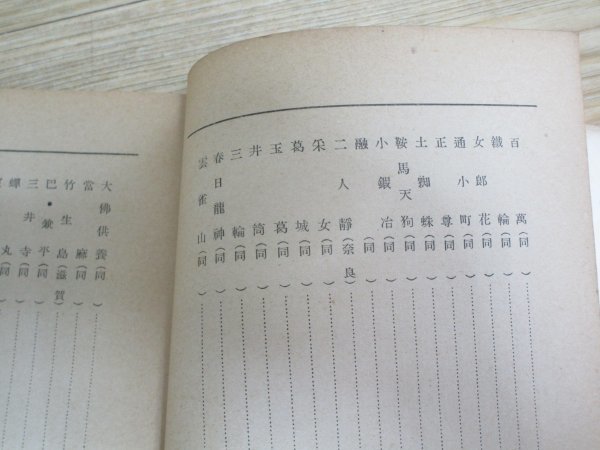 百萬(同)
鐵輪(同)
女郎花(同)
通小町(同)
正尊(同)
土蜘蛛(同)
鞍馬天狗(同)
小鍛冶(同)
融(同)
二人靜(奈良)
采女(同)
葛城(同)
玉葛(同)
井筒(同)
三輪(同)
春日龍神(同)
雲雀山(同)
大佛供養(同)
當麻(同)
竹生島(滋賀)
巴・兼平(同)
三井寺(同)
蟬丸(同)